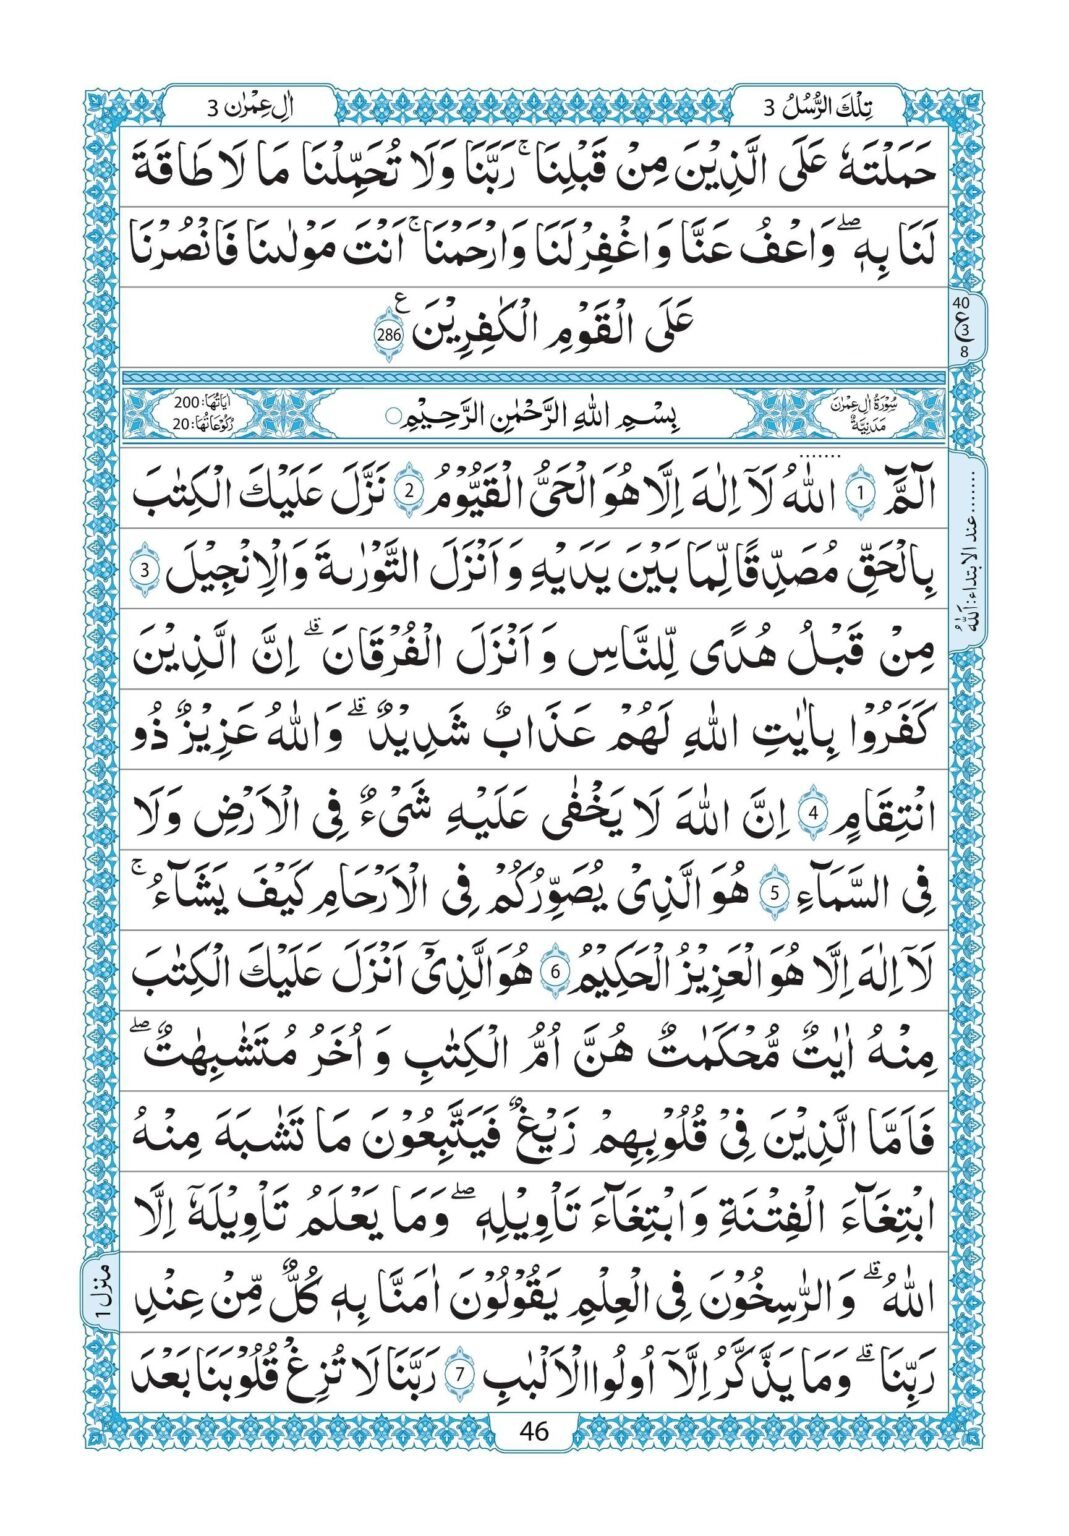 تِلْكَ الرُّسُلُ 3
اٰلِ عِمْرٰن 3
حَمَلْتَهٗ عَلَى الَّذِيْنَ مِنْ قَبْلِنَا ۚ رَبَّنَا وَلَا تُحَمِّلْنَا مَا لَا طَاقَةَ
لَنَا بِهٖ ۖ وَاعْفُ عَنَّا وَاغْفِرْ لَنَا وَارْحَمْنَا ۚ اَنْتَ مَوْلٰىنَا فَانْصُرْنَا
عَلَى الْقَوْمِ الْكٰفِرِيْنَ ࣖ 286
40
ع 3
8
سُوْرَةُ اٰلِ عِمْرٰنَ
مَدَنِيَّةٌ
بِسْمِ اللّٰهِ الرَّحْمٰنِ الرَّحِيْمِ ○
اٰيَاتُهَا: 200
رُكُوْعَاتُهَا: 20
الٓمّٓ 1 اللّٰهُ لَآ اِلٰهَ اِلَّا هُوَ الْحَىُّ الْقَيُّوْمُ 2 نَزَّلَ عَلَيْكَ الْكِتٰبَ
بِالْحَقِّ مُصَدِّقًا لِّمَا بَيْنَ يَدَيْهِ وَاَنْزَلَ التَّوْرٰىةَ وَالْاِنْجِيْلَ 3
....... عند الابتداء: اَللّٰهُ
مِنْ قَبْلُ هُدًى لِّلنَّاسِ وَاَنْزَلَ الْفُرْقَانَ ۗ اِنَّ الَّذِيْنَ
كَفَرُوْا بِاٰيٰتِ اللّٰهِ لَهُمْ عَذَابٌ شَدِيْدٌ ۗ وَاللّٰهُ عَزِيْزٌ ذُو
انْتِقَامٍ 4 اِنَّ اللّٰهَ لَا يَخْفٰى عَلَيْهِ شَىْءٌ فِى الْاَرْضِ وَلَا
فِى السَّمَآءِ 5 هُوَ الَّذِىْ يُصَوِّرُكُمْ فِى الْاَرْحَامِ كَيْفَ يَشَآءُ ۚ
لَآ اِلٰهَ اِلَّا هُوَ الْعَزِيْزُ الْحَكِيْمُ 6 هُوَ الَّذِىْٓ اَنْزَلَ عَلَيْكَ الْكِتٰبَ
مِنْهُ اٰيٰتٌ مُّحْكَمٰتٌ هُنَّ اُمُّ الْكِتٰبِ وَاُخَرُ مُتَشٰبِهٰتٌ ۖ
فَاَمَّا الَّذِيْنَ فِىْ قُلُوْبِهِمْ زَيْغٌ فَيَتَّبِعُوْنَ مَا تَشٰبَهَ مِنْهُ
ابْتِغَآءَ الْفِتْنَةِ وَابْتِغَآءَ تَاْوِيْلِهٖ ۖ وَمَا يَعْلَمُ تَاْوِيْلَهٗٓ اِلَّا
اللّٰهُ ۗ وَالرّٰسِخُوْنَ فِى الْعِلْمِ يَقُوْلُوْنَ اٰمَنَّا بِهٖ كُلٌّ مِّنْ عِنْدِ
منزل 1
رَبِّنَا ۗ وَمَا يَذَّكَّرُ اِلَّآ اُولُوا الْاَلْبٰبِ 7 رَبَّنَا لَا تُزِغْ قُلُوْبَنَا بَعْدَ
46